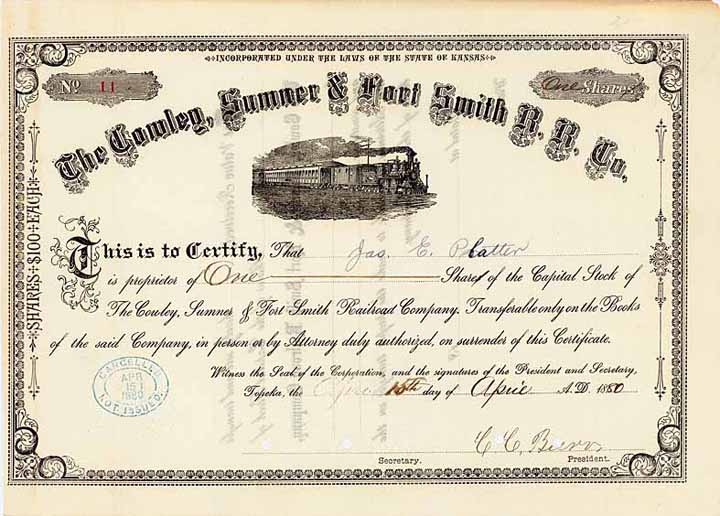 INCORPORATED UNDER THE LAWS OF THE STATE OF KANSAS
No 11
One Shares
The Cowley, Sumner & Fort Smith R. R. Co.
SHARES $100 EACH
This is to Certify, That Jas. E. Platter
is proprietor of One Shares of the Capital Stock of
The Cowley, Sumner & Fort Smith Railroad Company. Transferable only on the Books
of the said Company, in person or by Attorney duly authorized, on surrender of this Certificate.
Witness the Seal of the Corporation, and the signatures of the President and Secretary,
Topeka, the 15th day of April A.D. 1880
CANCELLED
APR
15
1880
NOT ISSUED.
C. C.
Secretary. President.